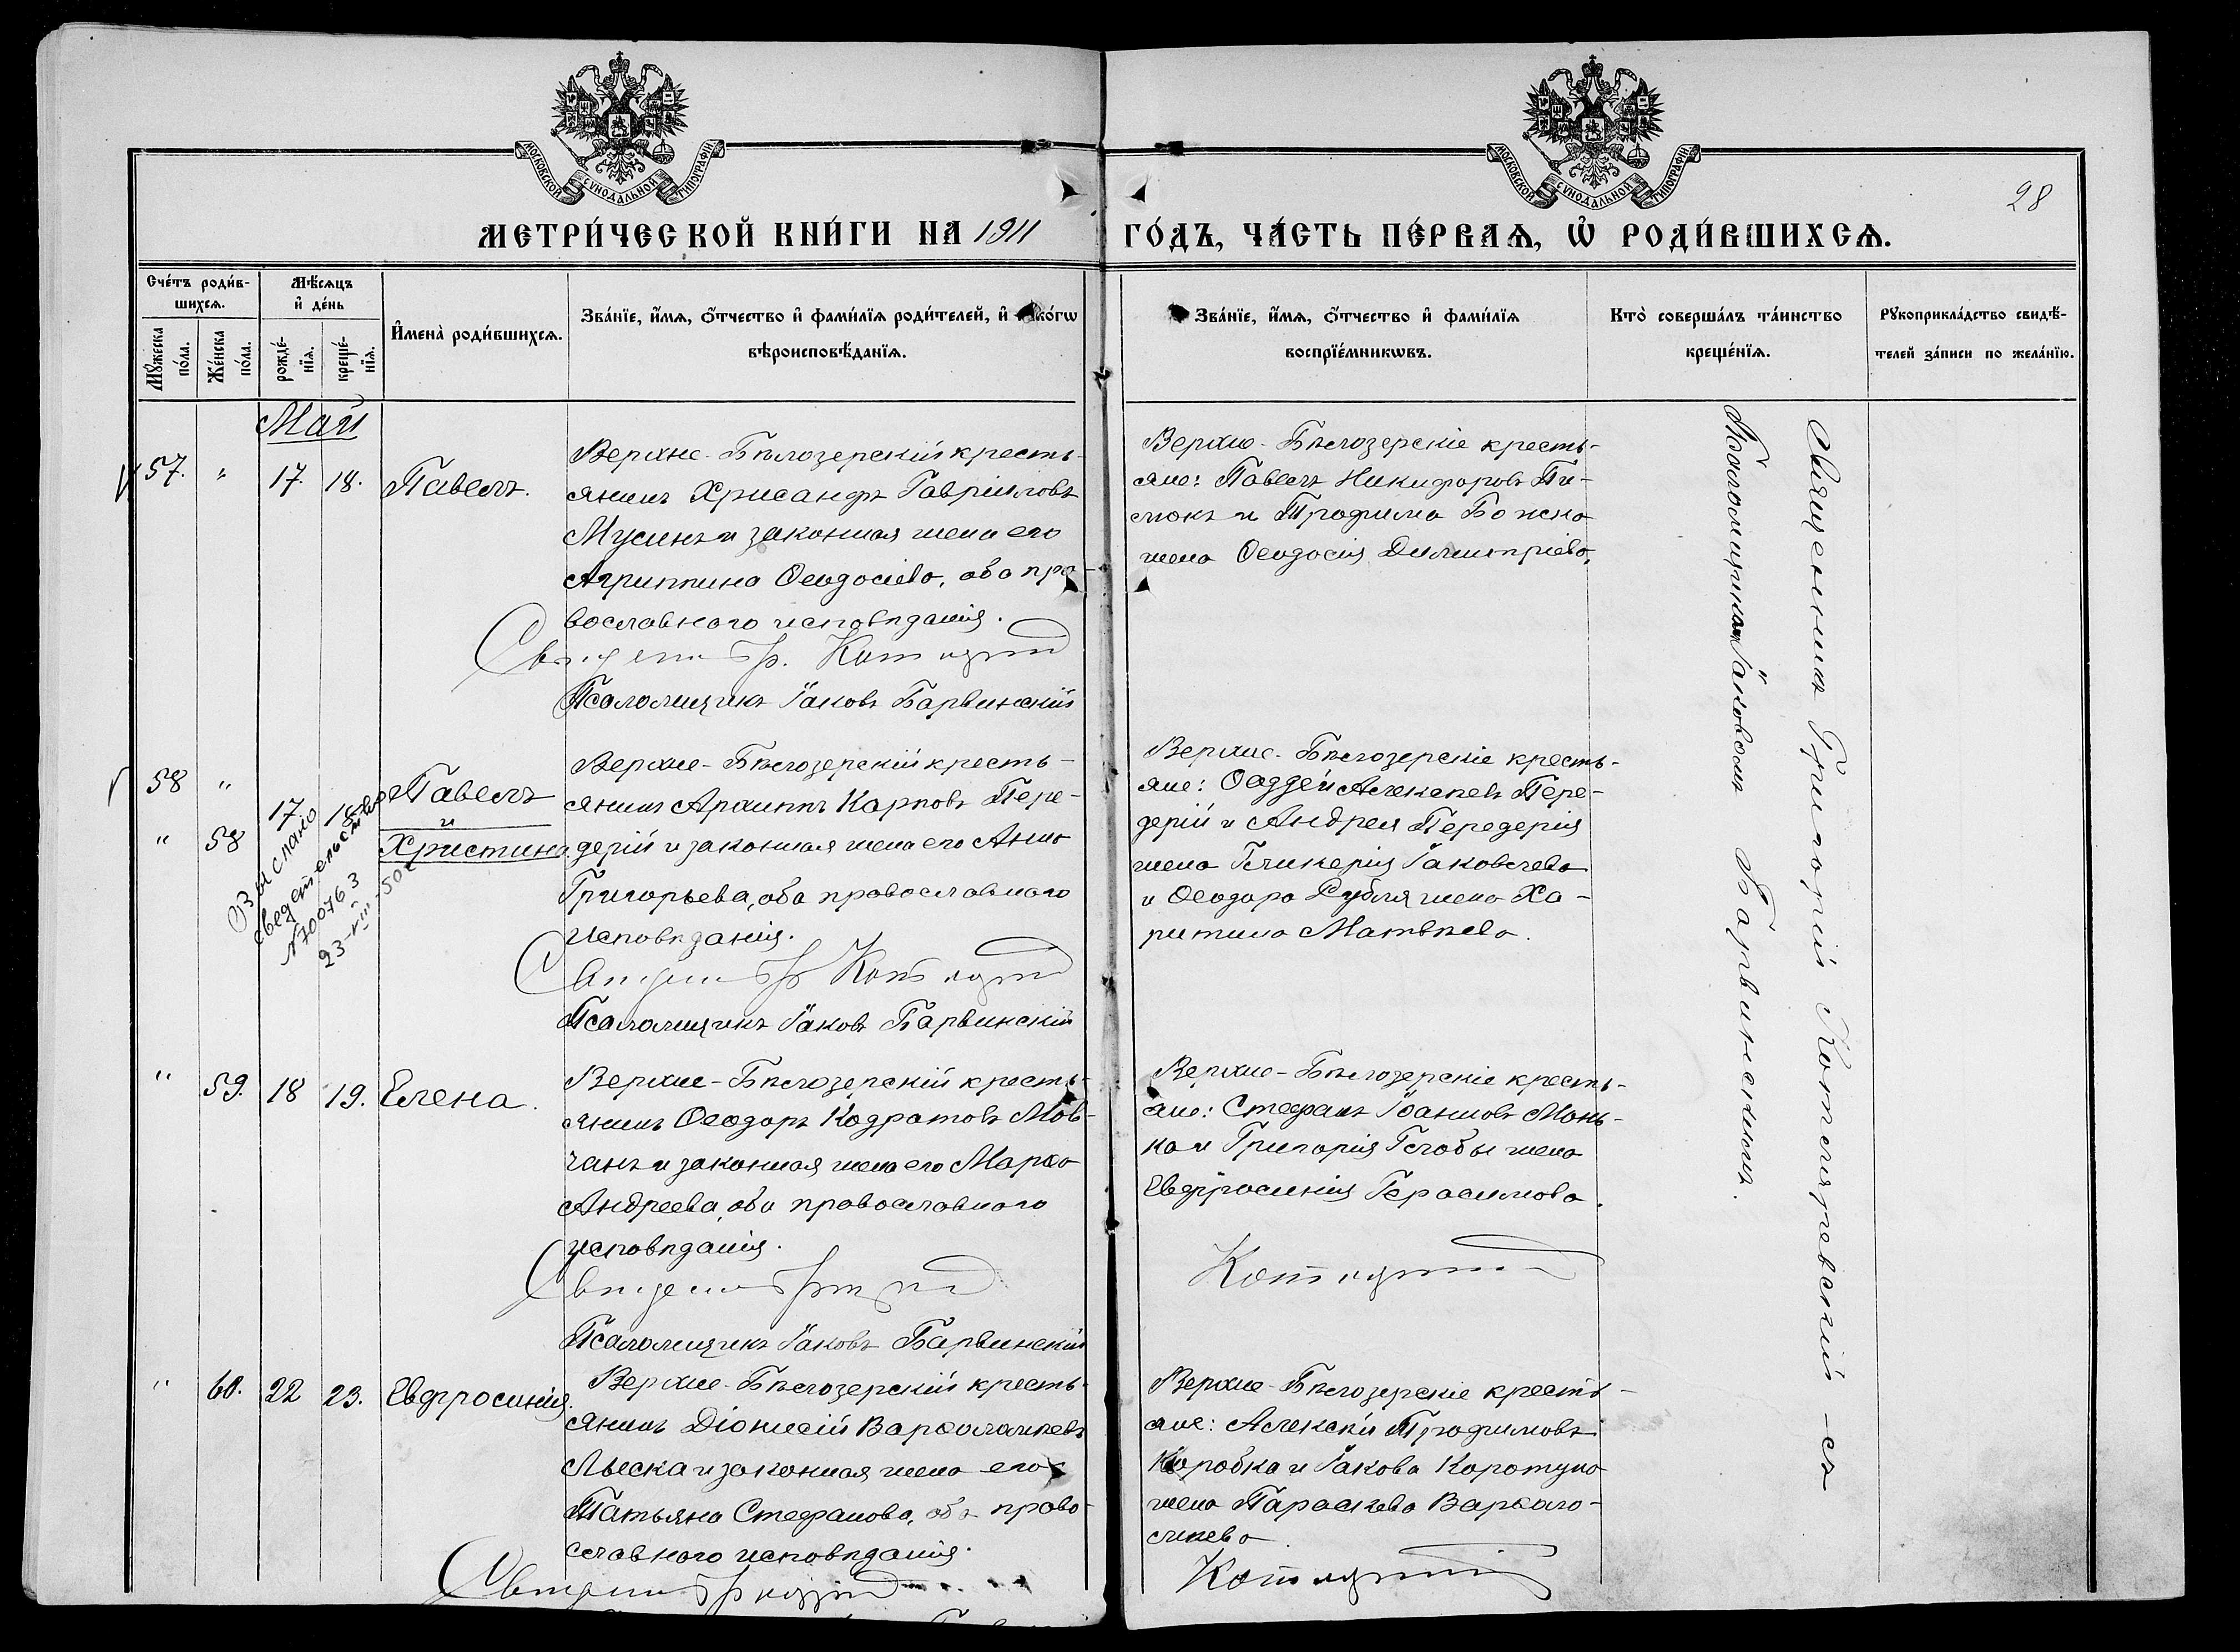 МОСКОВСКОЙ СѴНОДАЛЬНОЙ ТИПОГРАФІИ
МОСКОВСКОЙ СѴНОДАЛЬНОЙ ТИПОГРАФІИ
28
МЕТРИ́ЧЕСКОЙ КНИ́ГИ НА 1911 ГО́ДЪ, ЧА́СТЬ ПЕ́РВАѦ, Ѡ҆ РОДИ́ВШИХСѦ.
Счéтъ роди́в-
шихсѧ.
Мꙋ́жеска по́ла.
Же́нска по́ла.
Мѣ́сѧцъ
и҆ де́нь
рожде́-
нїѧ.
креще́-
нїѧ.
И҆мена̀ роди́вшихсѧ.
Зва́нїе, и҆́мѧ, ѻ҆́тчество и҆ фами́лїѧ роди́телей, и҆ како́гѡ
вѣроисповѣ́данїѧ.
Зва́нїе, и҆́мѧ, ѻ҆́тчество и҆ фами́лїѧ
воспрїе́мникѡвъ.
Кто̀ соверша́лъ та́инство
креще́нїѧ.
Рꙋкоприкла́дство свидѣ́-
телей за́писи по жела́нїю.
Май
57. " 17. 18. Павелъ.
Верхне-Бѣлозерскій кресть-
янинъ Хрисанфъ Гавріиловъ
Мусинъ и законная жена его
Агриппина Ѳеодосіева, оба пра-
вославнаго исповѣданія.
Священ. Гр.
Псаломщикъ Іаковъ Барвинскій
Верхне-Бѣлозерскіе кресть-
яне: Павелъ Никифоровъ Пи-
и Трофима Божка
жена Ѳеодосія Димитріева.
58 " 17 18 Павелъ
и
" 58 Христина.
Выслано
свидетельство
№ 700763
23-VIII-50г
Верхне-Бѣлозерскій кресть-
янинъ Архиппъ Карповъ Пере-
дерій и законная жена его Анна
Григорьева, оба православнаго
исповѣданія.
Священ. Гр.
Псаломщикъ Іаковъ Барвинскій
Верхне-Бѣлозерскіе кресть-
яне: Ѳаддей Алексѣевъ Пере-
дерій и Андрея Передерія
жена Гликерія Іаковлева
и Ѳеодора Рубля жена Ха-
ритина Матвѣева.
" 59. 18 19. Елена.
Верхне-Бѣлозерскій кресть-
янинъ Ѳеодоръ Кодратовъ Мов-
чанъ и законная жена его Марѳа
Андреева, оба православнаго
исповѣданія.
Псаломщикъ Іаковъ Барвинскій
Верхне-Бѣлозерскіе кресть-
яне: Стефанъ Іоанновъ Мань-
ка и Григорія Глобы жена
Евфросинія Герасимова.
" 60. 22 23. Евфросинія.
Верхне-Бѣлозерскій кресть-
янинъ Діонисій Варѳоломеевъ
Лыска и законная жена его
Татьяна Стефанова, оба право-
славнаго исповѣданія.
Верхне-Бѣлозерскіе кресть-
яне: Алексѣй Трофимовъ
Коробка и Іакова Коротуна
жена Параскева Варѳоло-
мѣева.
Священникъ Григорій -съ
Псаломщикомъ Іаковомъ Барвинскимъ.